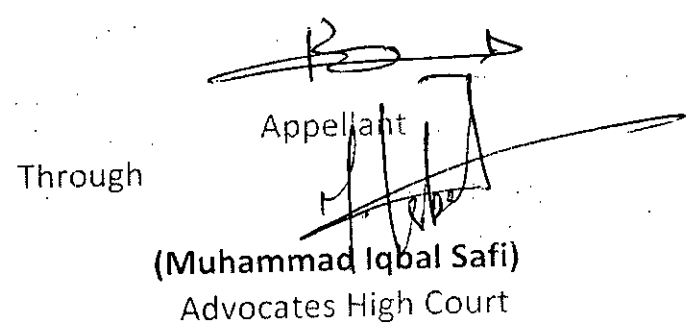 Appellant
Through
(Muhammad Iqbal Safi)
Advocates High Court